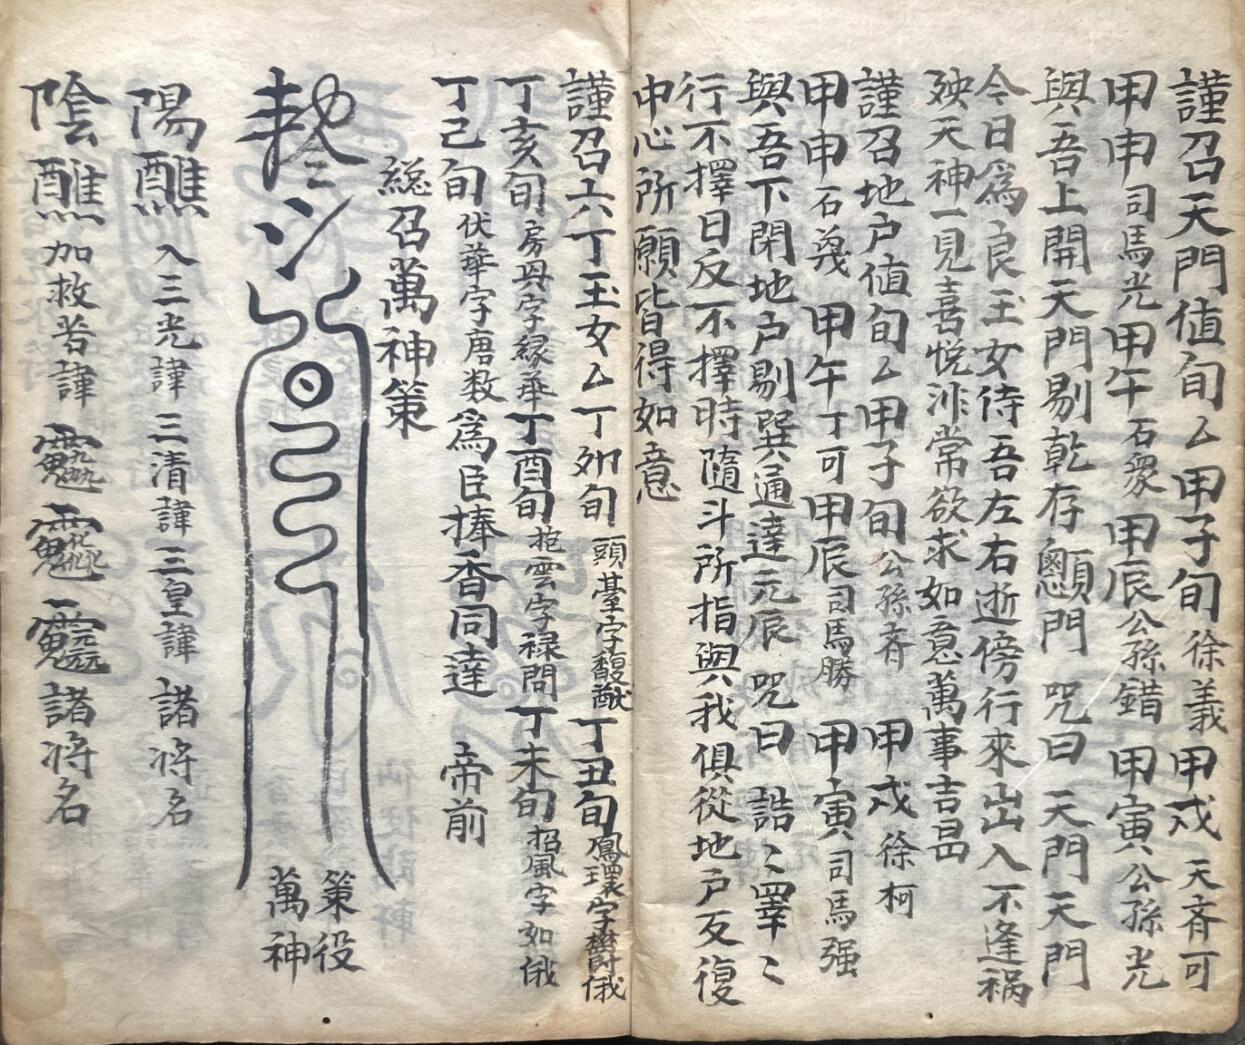 謹召天門值旬厶甲子旬徐義甲戌天齊可
甲申司馬光甲午石衆甲辰公孫錯甲寅公孫光
與吾上開天門剔乾存 門 咒曰天門天門
今日為良玉女侍吾左右逝傍行來出入不逢禍
殃天神一見喜悅 常欲求如意萬事吉昌
謹召地户值旬厶甲子旬公孫齊甲戌徐柯
甲申石 甲午丁可甲辰司馬勝甲寅司馬强
與吾下閉地户剔巽通達元辰咒曰誥〻睪〻
行不擇日反不擇時隨斗所指與我俱從地户反復
中心所願皆得如意
謹召六丁玉女厶丁夘旬頭臺字馥 丁丑旬鳳環字欎俄
丁亥旬房 字緣華丁酉旬 雲字禄問丁未旬招風字如俄
丁己旬伏華字唐数為臣捧香同達帝前
総召萬神策
策役
萬神
陽醮入三光諱三清諱三皇諱諸將名
陰醮加救苦諱 諸將名